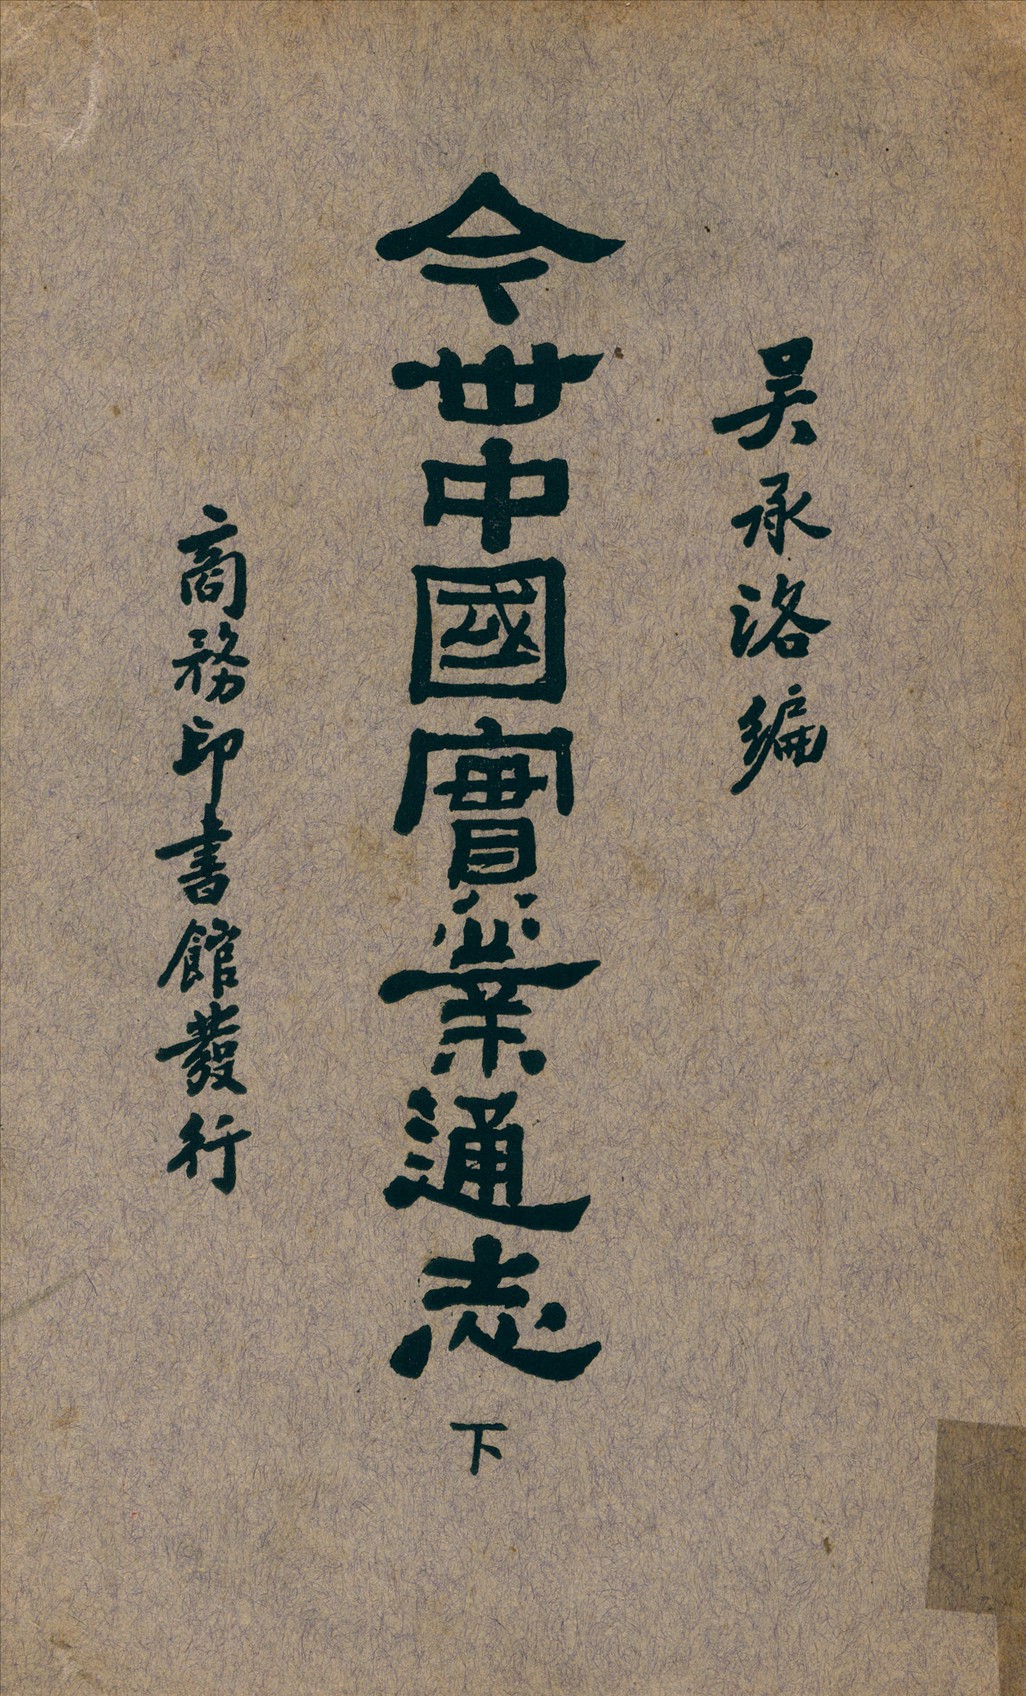 吴承洛編
今世中國實業通志
下
商務印書館發行